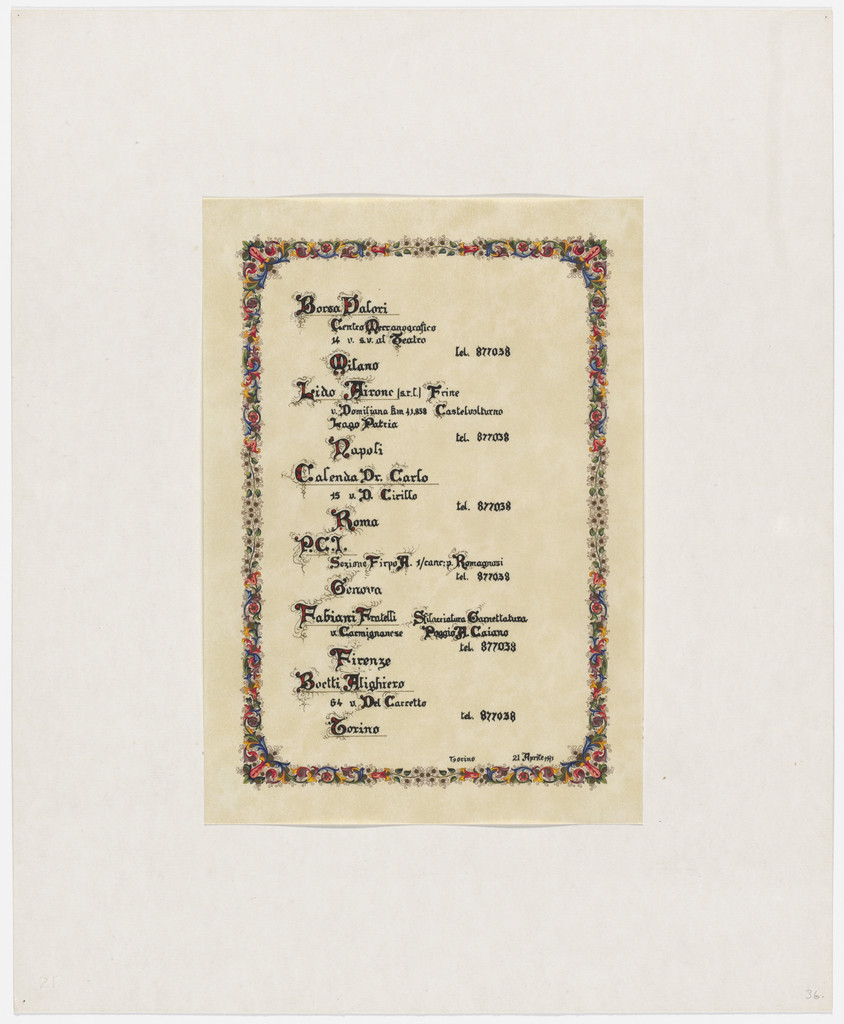 Borsa Valori
Centro Meccanografico
14 v. s.v. al Teatro
tel. 877038
Milano
Lido Airone (s.r.l.) Frine
v. Domiziana km 41,858 Castelvolturno
Lago Patria
tel. 877038
Napoli
Calenda Dr. Carlo
15 v. D. Cirillo
tel. 877038
Roma
P.C.I.
Sezione Firpo A. 1/canc; p. Romagnosi
tel. 877038
Genova
Fabiani Fratelli Sfilacciatura Garnettatura
v. Carmignanese Poggio A. Caiano
tel. 877038
Firenze
Boetti Alighiero
64 v. Del Carretto
tel. 877038
Torino
Torino 21 Aprile 1971
36.